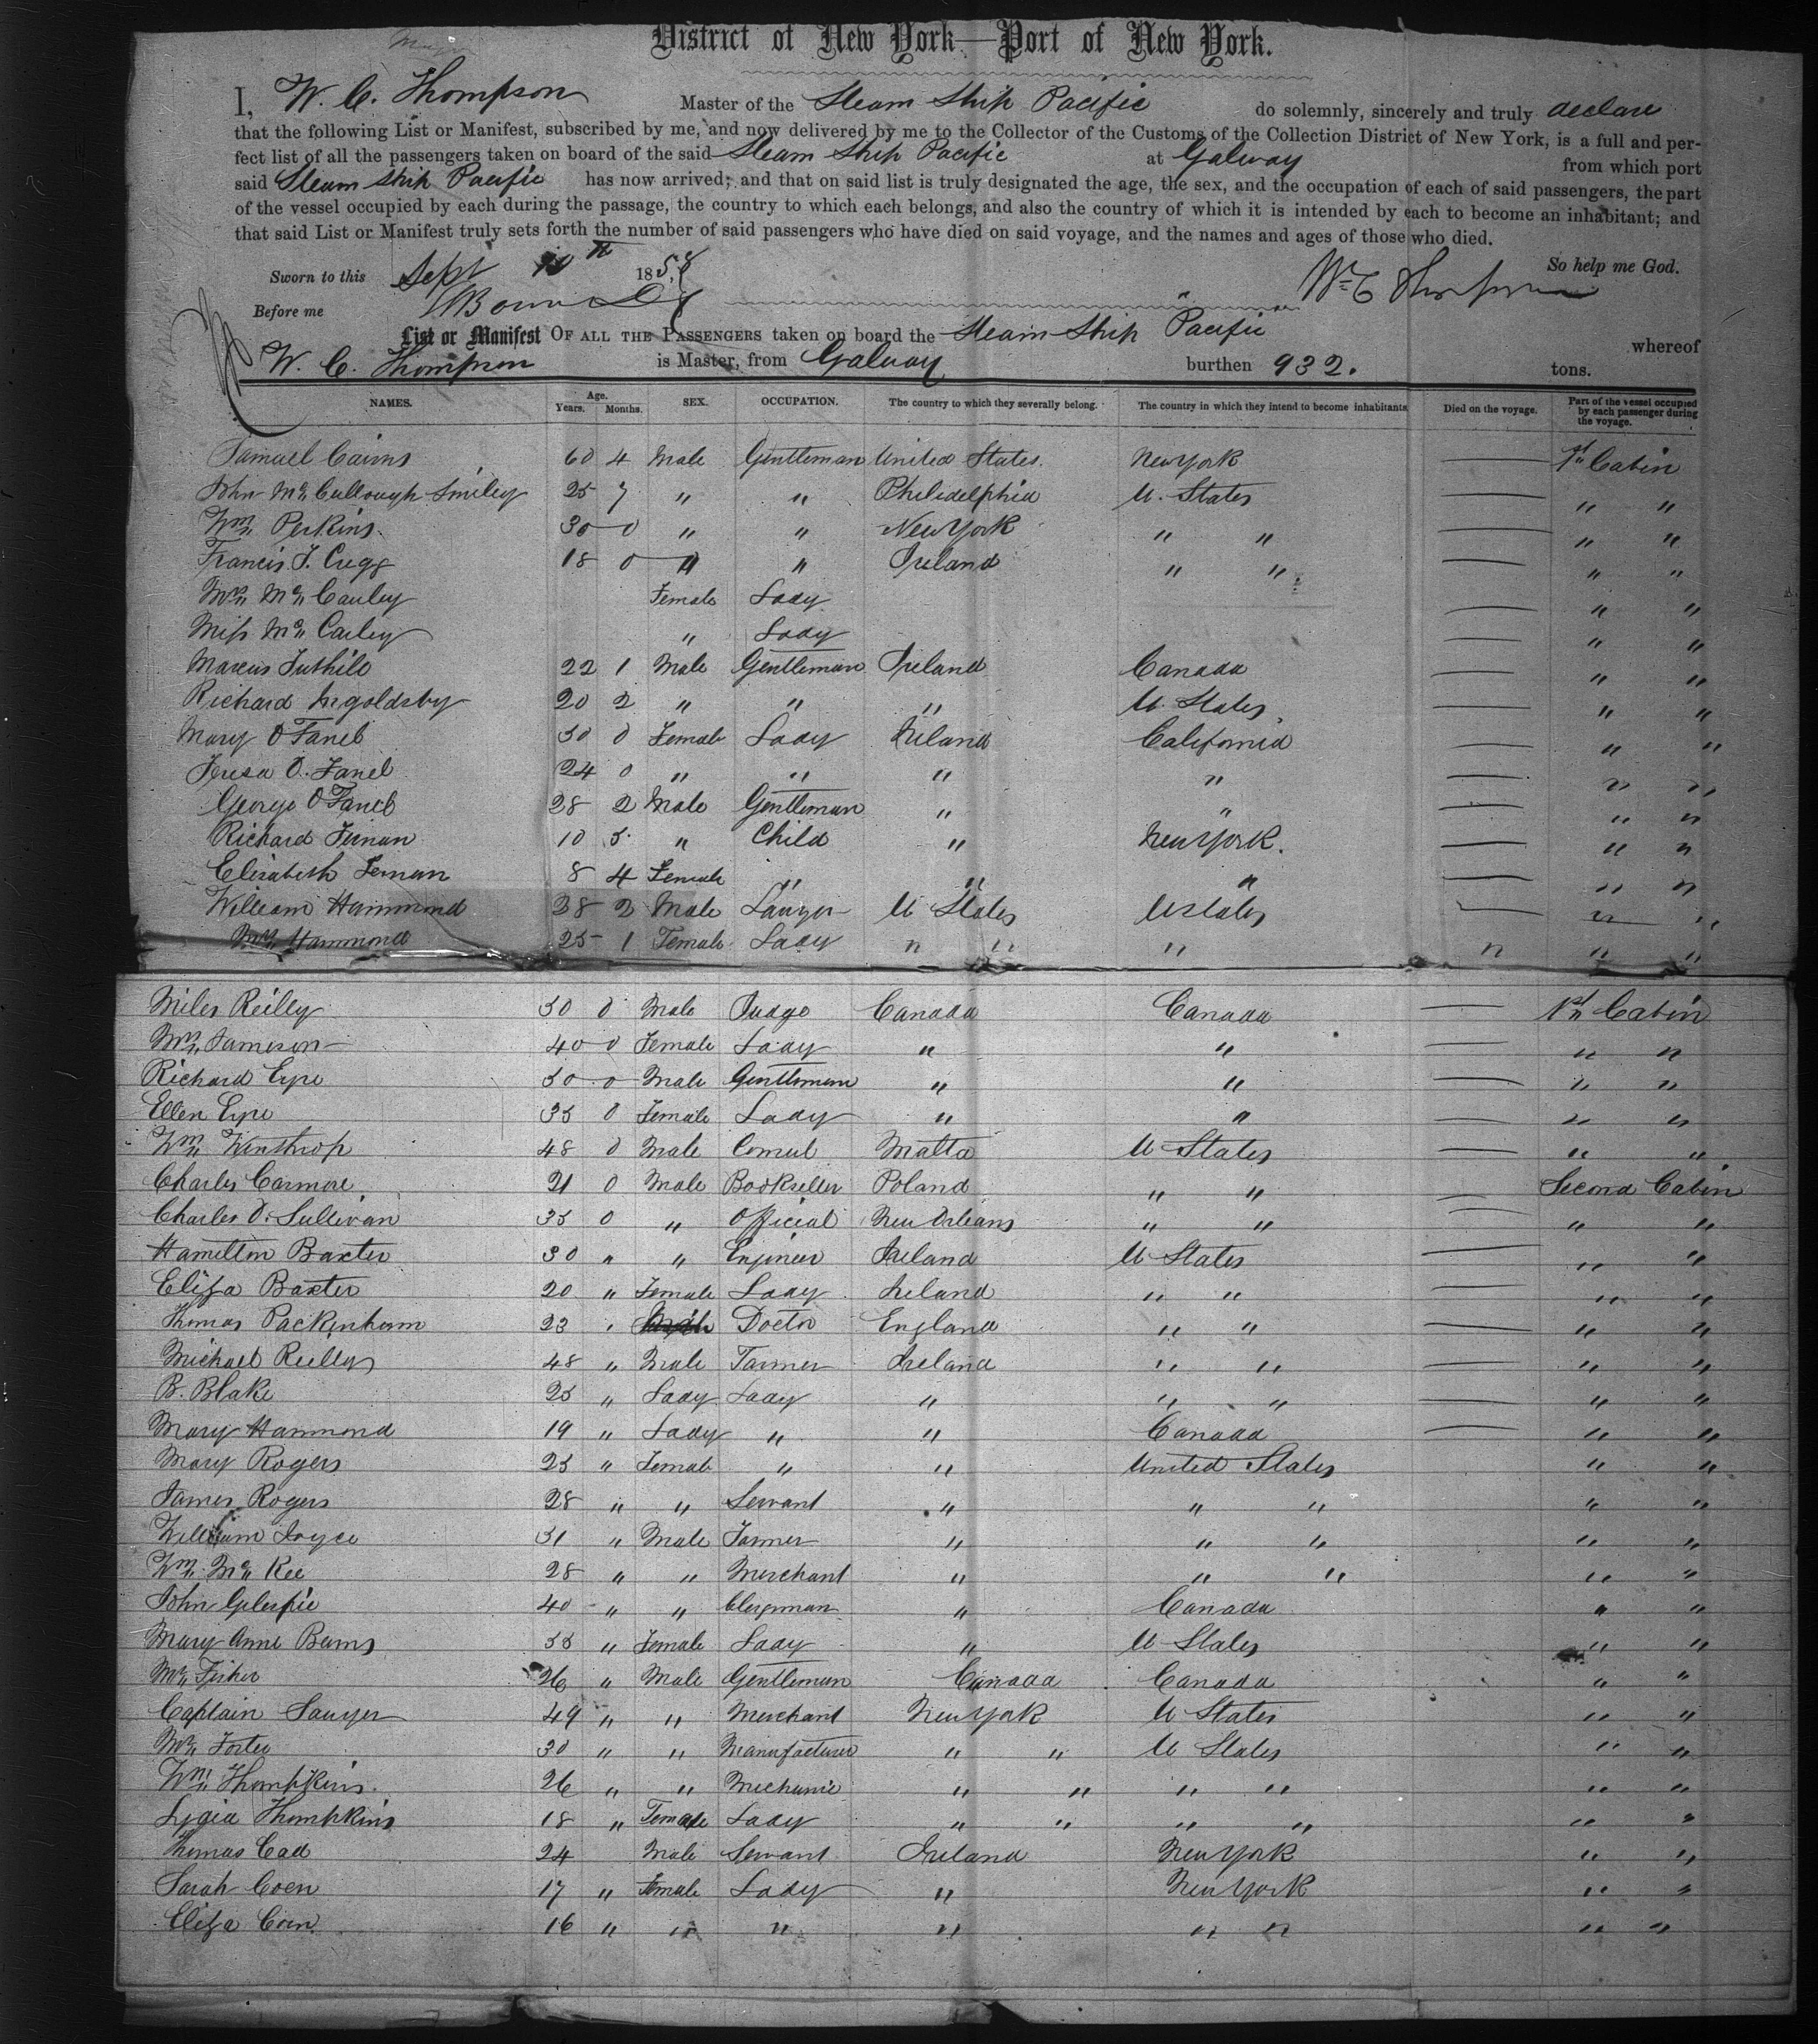 District of New York—Port of New York.
I, W. C. Thompson Master of the Steam Ship Pacific do solemnly, sincerely and truly declare
that the following List or Manifest, subscribed by me, and now delivered by me to the Collector of the Customs of the Collection District of New York, is a full and per-
fect list of all the passengers taken on board of the said Steam Ship Pacific at Galway from which port
said Steam Ship Pacific has now arrived; and that on said list is truly designated the age, the sex, and the occupation of each of said passengers, the part
of the vessel occupied by each during the passage, the country to which each belongs, and also the country of which it is intended by each to become an inhabitant; and
that said List or Manifest truly sets forth the number of said passengers who have died on said voyage, and the names and ages of those who died.
Sworn to this Sept 10th 1858 So help me God.
Before me Wm C Thompson
List or Manifest OF ALL THE PASSENGERS taken on board the Steam Ship Pacific whereof
W. C. Thompson is Master, from Galway burthen 932. tons.
NAMES. Age. Years. Months. SEX. OCCUPATION. The country to which they severally belong. The country in which they intend to become inhabitants Died on the voyage. Part of the vessel occupied by each passenger during the voyage.
Samuel Cairns 60 4 Male Gentleman United States. New York — 1st Cabin
John Mc Cullough Smiley 25 7 " " Philedelphia U. States — " "
Wm Perkins. 30 0 " " New York " " — " "
Francis J. Cregg 18 0 " " Ireland " " — " "
Mrs Mc Cauley Female Lady — " "
Miss Mc Carley " Lady — " "
Marcus Tuthile 22 1 Male Gentleman Ireland Canada — " "
Richard Ingoldsby 20 2 " " " U. States — " "
Mary O'Fanel 30 0 Female Lady Ireland California — " "
Teresa O. Fanel 24 0 " " " " — " "
George O'Fanel 28 2 Male Gentleman " " — " "
Richard Ternan 10 5 " Child " New York. — " "
Elizabeth Ternan 8 4 Female " " " — " "
William Hammond 28 2 Male Lawyer U States U States — " "
Mrs Hammond 25 1 Female Lady " " " " " "
Miles Reilly 50 0 Male Judge Canada Canada — 1st Cabin
Mrs Jameson 40 0 Female Lady " " — " "
Richard Eyre 50 0 Male Gentleman " " — " "
Ellen Eyre 35 0 Female Lady " " — " "
Wm Winthrop 48 0 Male Consul Malta U States — " "
Charles Carmore 21 0 Male Bookseller Poland " " — Second Cabin
Charles O. Sullivan 35 0 " Official New Orleans " " — " "
Hamilton Baxter 30 " " Engineer Ireland U States — " "
Eliza Baxter 20 " Female Lady Ireland " " — " "
Thomas Packenham 23 " Doctor England " " — " "
Michael Reilly 48 " Male Farmer Ireland " " — " "
B. Blake 25 " Lady Lady " " " — " "
Mary Hammond 19 " Lady " " Canada — " "
Mary Rogers 25 " Female " " United States " "
James Rogers 28 " " Servant " " " " "
William Joyce 31 " Male Farmer " " " " "
Wm Mc Kee 28 " " Merchant " " " " "
John Gilespie 40 " " Clergyman " Canada " "
Mary Anne Beams 35 " Female Lady " U States " "
Mr Fisher 26 " Male Gentleman Canada Canada " "
Captain Sawyer 49 " " Merchant New York U States " "
Mr Foster 30 " " Manufacturer " " U States " "
Wm Thompkins. 26 " " Mechanic " " " " " "
Lydia Thompkins 18 " Female Lady " " " " " "
Thomas Cad 24 Male Servant Ireland New York " "
Sarah Coen 17 " Female Lady " New York " "
Eliza Coen. 16 " " " " " " " "